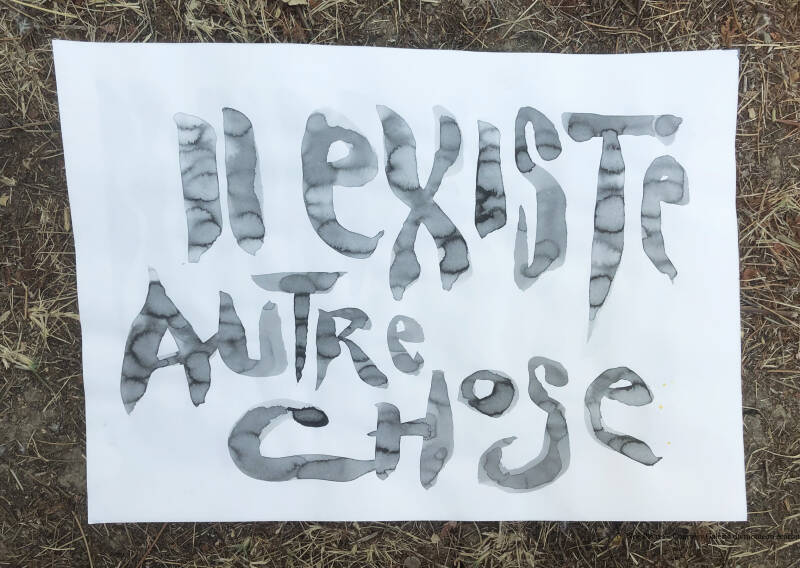 Il existe
AUTRe
CHOSe